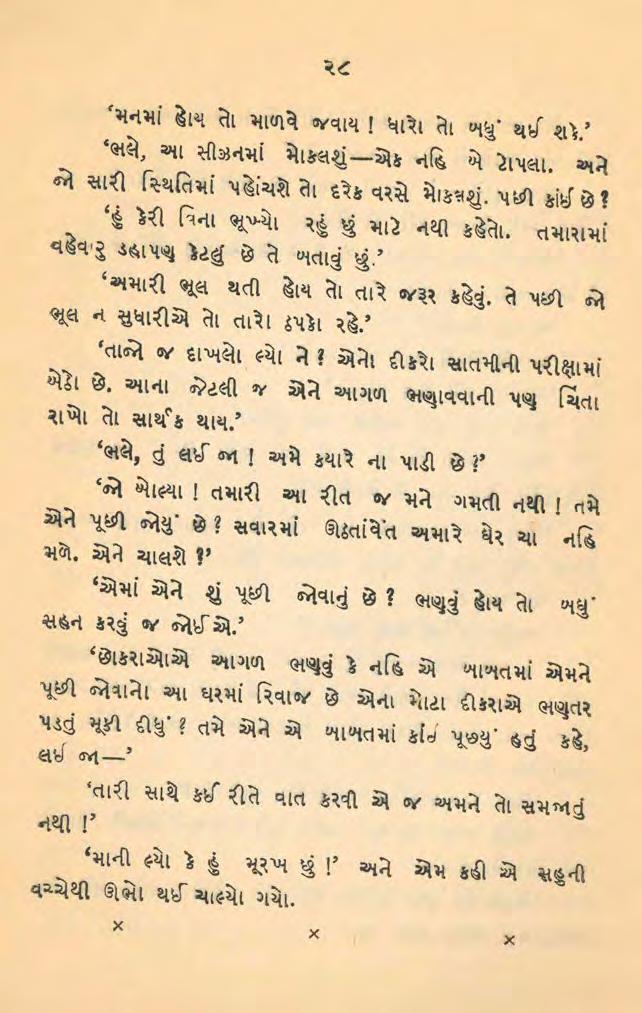 ૨૮
‘મનમાં હોય તો માળવે જવાય ! ધારો તો બધું થઈ શકે.’
‘ભલે, આ સીઝનમાં મોકલશું—એક નહિ બે ટોપલા. અને
જો સારી સ્થિતિમાં પહોંચશે તો દરેક વરસે મોકલશું. પછી કાંઈ છે ?
‘હું કેરી વિના ભૂખ્યો રહું છું માટે નથી કહેતો. તમારામાં
વહેવારુ ડહાપણ કેટલું છે તે બતાવું છું.’
‘અમારી ભૂલ થતી હોય તો તારે જરૂર કહેવું. તે પછી જો
ભૂલ ન સુધારીએ તો તારો ઠપકો રહે.’
‘તાજો જ દાખલો લ્યો ને ? એનો દીકરો સાતમીની પરીક્ષામાં
બેઠો છે. આના જેટલી જ એને આગળ ભણાવવાની પણ ચિંતા
રાખો તો સાર્થક થાય.’
‘ભલે, તું લઈ જા ! અમે કયારે ના પાડી છે ?’
‘જો બોલ્યા ! તમારી આ રીત જ મને ગમતી નથી ! તમે
એને પૂછી જોયું છે ? સવારમાં ઊઠતાંવેંત અમારે ઘેર ચા નહિ
મળે. એને ચાલશે ?’
‘એમાં એને શું પૂછી જોવાનું છે ? ભણવું હોય તો બધું
સહન કરવું જ જોઈએ.’
‘છોકરાઓએ આગળ ભણવું કે નહિ એ બાબતમાં એમને
પૂછી જોવાનો આ ઘરમાં રિવાજ છે એના મોટા દીકરાએ ભણતર
પડતું મૂકી દીધું ? તમે એને એ બાબતમાં કાંઈ પૂછયું હતું કહે,
લઈ જા—’
‘તારી સાથે કઈ રીતે વાત કરવી એ જ અમને તો સમજાતું
નથી !’
‘માની લ્યો કે હું મૂરખ છું !’ અને એમ કહી એ સહુની
વચ્ચેથી ઊભો થઈ ચાલ્યો ગયો.
× × ×